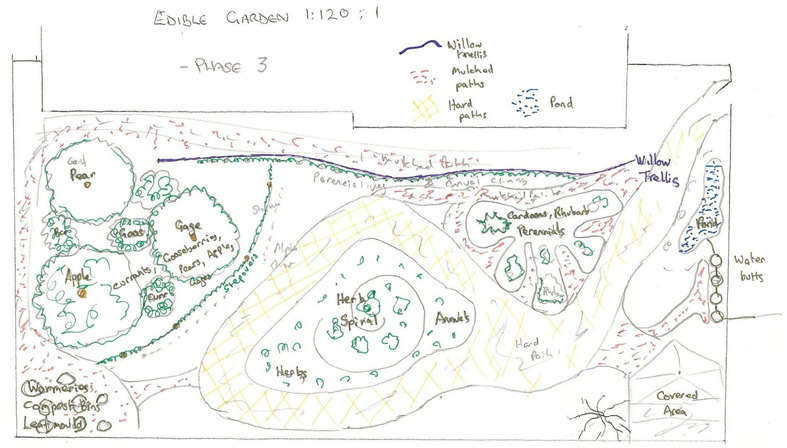 EDIBLE GARDEN 1:120 : 1
- PHASE 3
Willow
trellis
Mulched
paths
Hard
paths
Pond
Mulched Paths
Willow
Trellis
Perennial
& Annual Climbers
Pear
Gage
Goos
Gooseberries,
Pears, Apples,
Gages
Currants,
Apple
Stepovers
Cardoons, Rhubarb
Perennials
Pond
Water
butts
Herb
Spiral
Annuals
Herbs
Hard
Path
Wormeries,
Compost Bins
Leafmould
Covered
Area